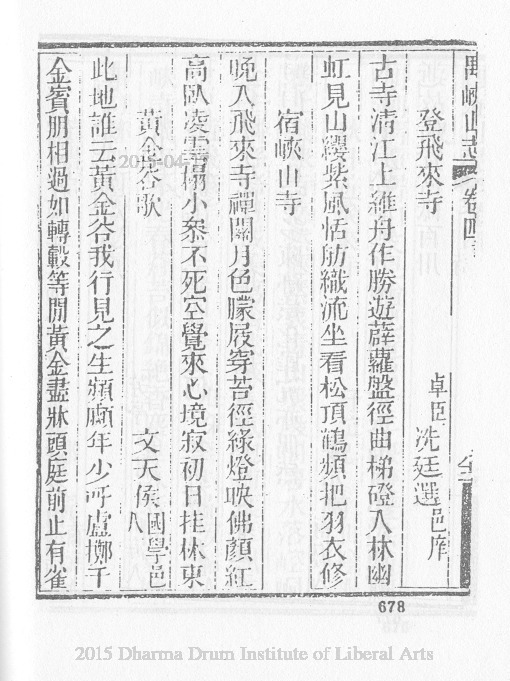 禺峽山志 卷四
登飛來寺 卓臣 冼廷選 邑庠
古寺清江上維舟作勝遊薜蘿盤徑曲梯磴入林幽
虹見山纓紫風恬舫織流坐看松頂鶴頻把羽衣修
宿峽山寺
晚入飛來寺禪關月色朦屐穿苔徑綠燈映佛顏紅
高臥凌雲榻小叅不死空覺來心境寂初日挂林東
黃金谷歌 文天侯 國學邑人
此地誰云黃金谷我行見之生頻顣年少呼盧擲千
金賓朋相過如轉轂等閒黃金盡牀頭庭前止有雀
678
2015 Dharma Drum Institute of Liberal Arts